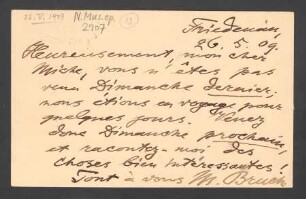 26.V.1909
N.Mus.ep.
2907
Friedenau,
26. 5. 09.
Heureusement, mon cher
Miche, vous n'êtes pas
venu Dimanche dernier,
nous étions en voyage pour
quelques jours. Venez
donc Dimanche prochain,
et racontez-moi des
choses bien intéressantes!
Tout à vous M. Bruch